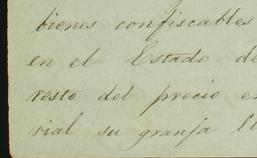 bienes confiscables
en el Estado de
resto del precio en
rial su granja l